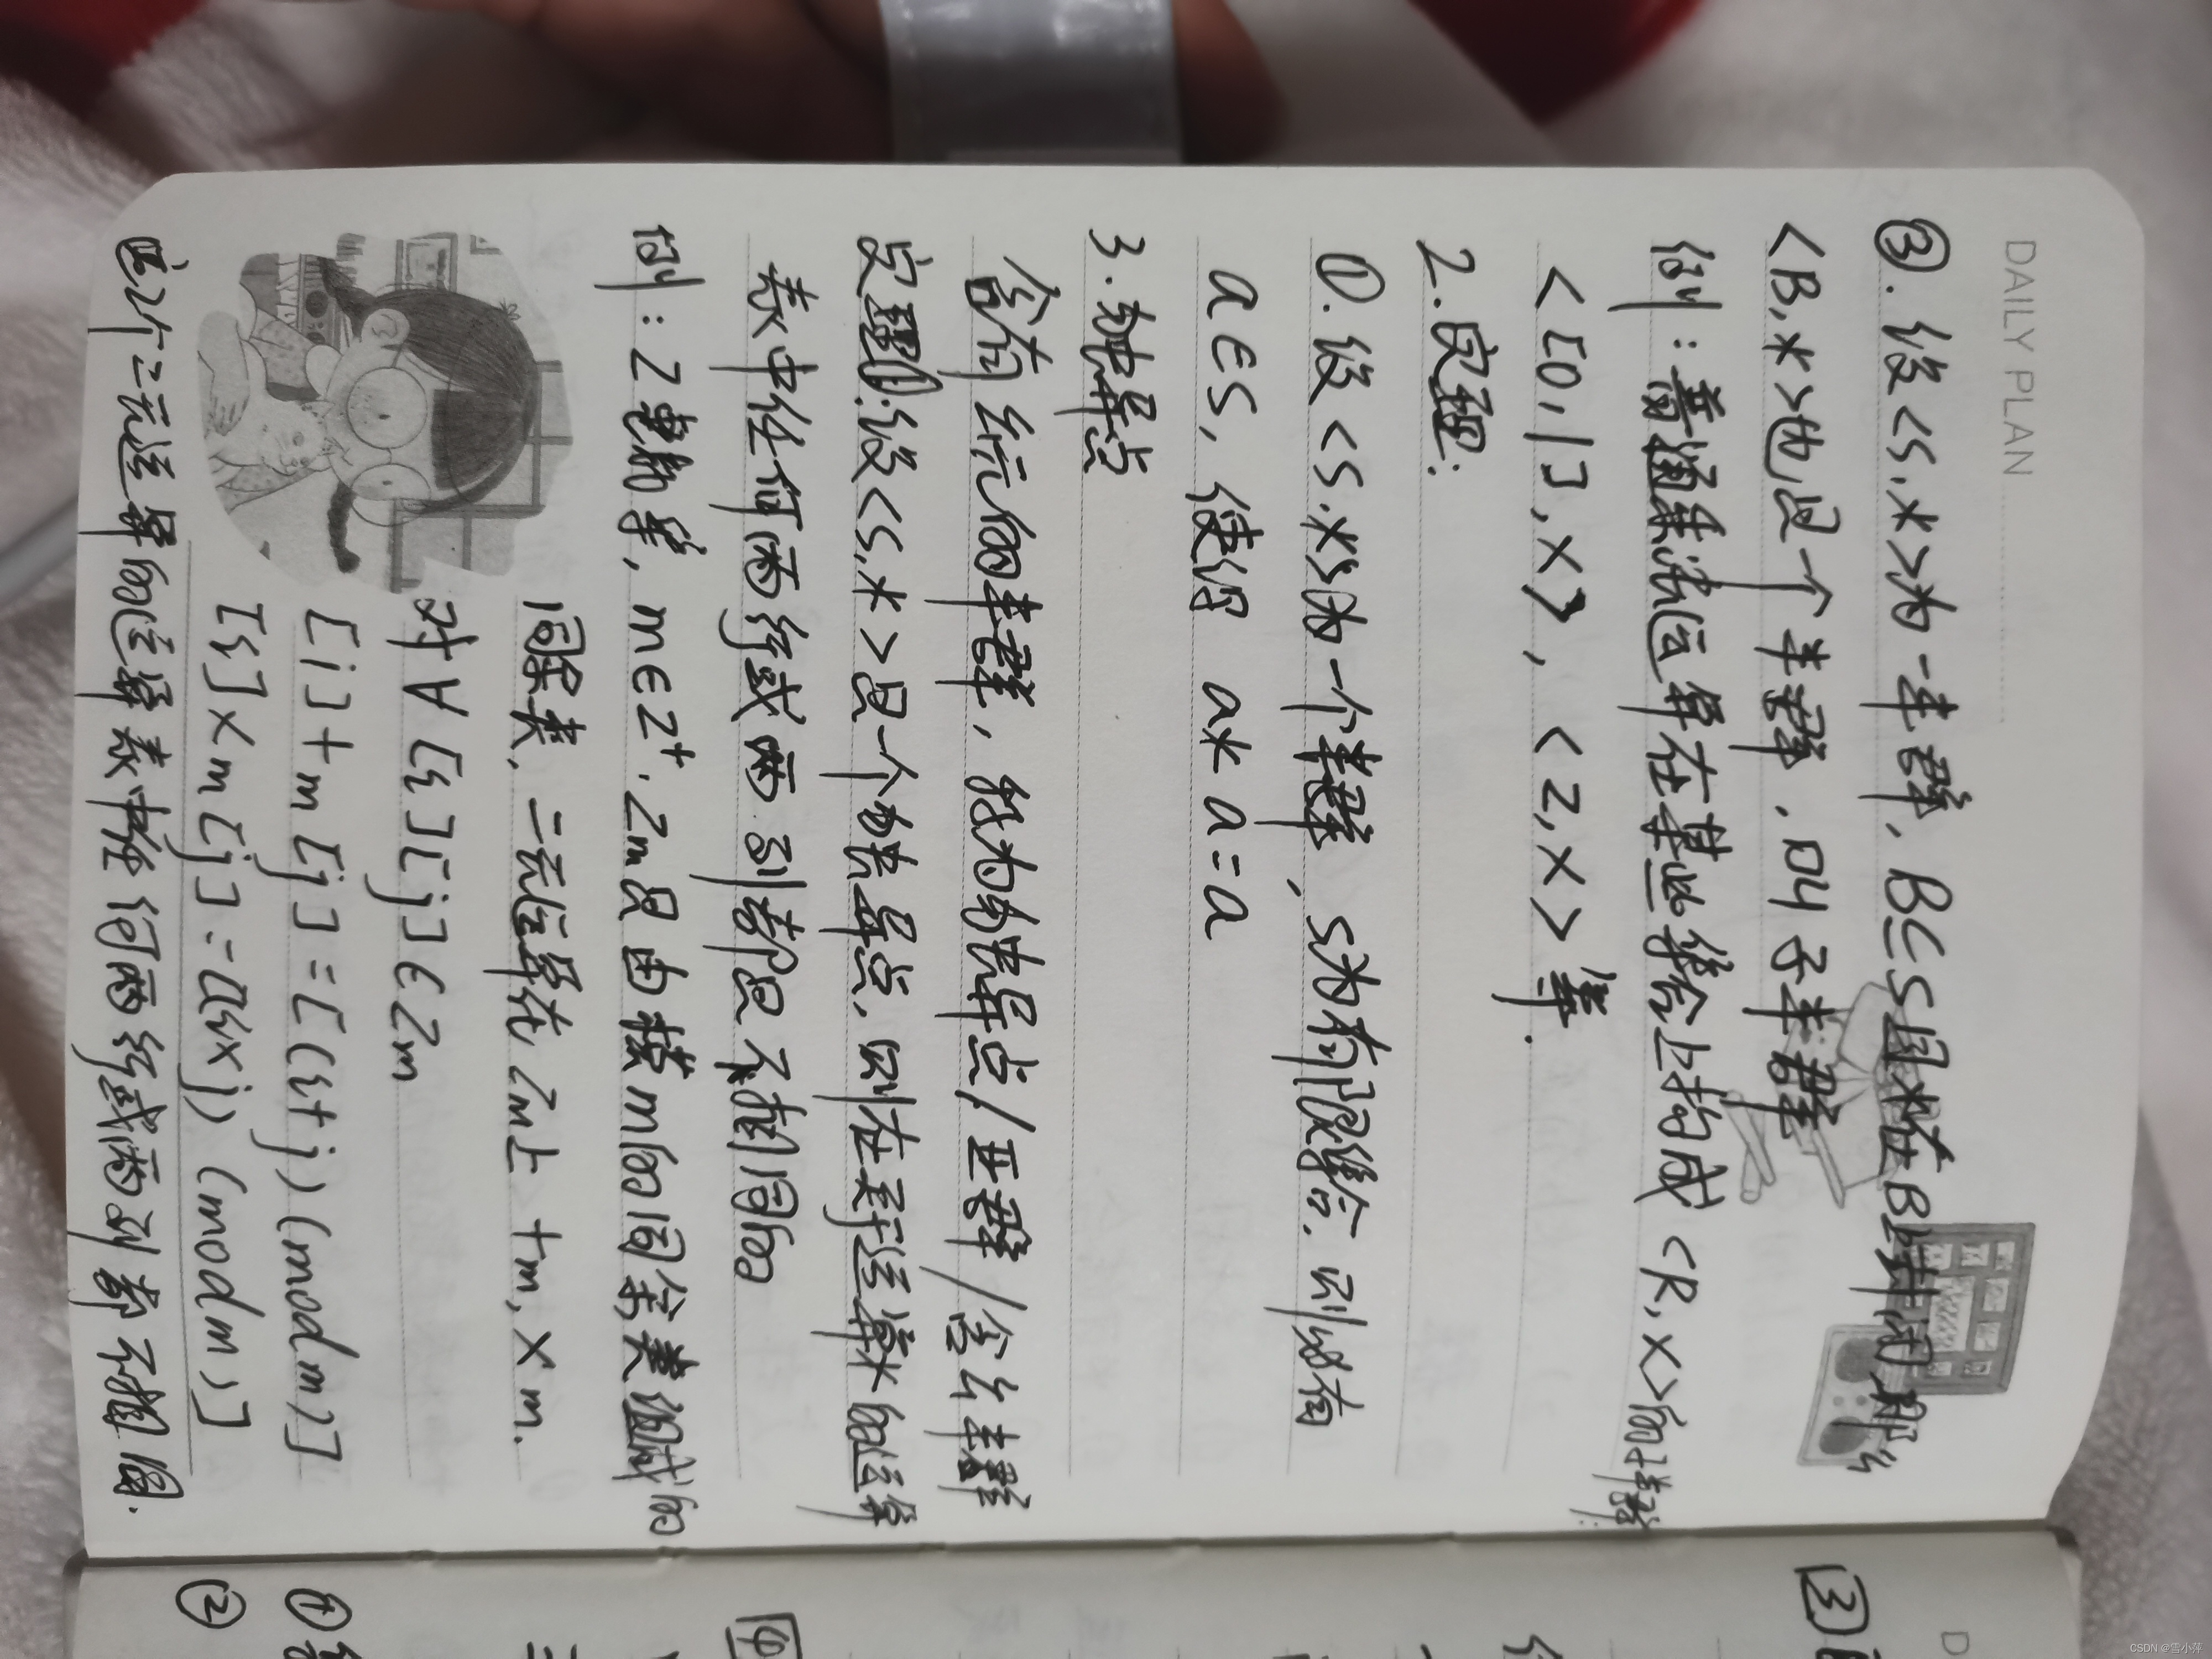 DAILY PLAN
③.设<S,*>为一半群,B⊆S且*在B上封闭那么
<B,*>也是个半群,叫子半群
例:普通乘法运算在某些集合上构成<R,×>的子半群:
<[0,1],×>,<Z,×>等.
2.定理:
①.设<S,*>为一个半群,S为有限集合.则必有
a∈S,使得 a*a=a
3.独异点
含有幺元的半群,称为独异点/亚群/含幺半群
定理:设<S,*>是一个独异点,则在关于运算*的运算
表中任何两行或两列都是不相同的
例:Z整数集,m∈Z⁺,Zm是由模m的同余类组成的
同余类,二元运算在Zm上 +m,×m.
对∀[i][j]∈Zm
[i]+m[j]=[(i+j)(mod m)]
[i]×m[j]=[(i×j)(mod m)]
这2个二元运算的运算表中任何两行或两列都不相同.
3
4
①
②
D
CSDN @雪小萍